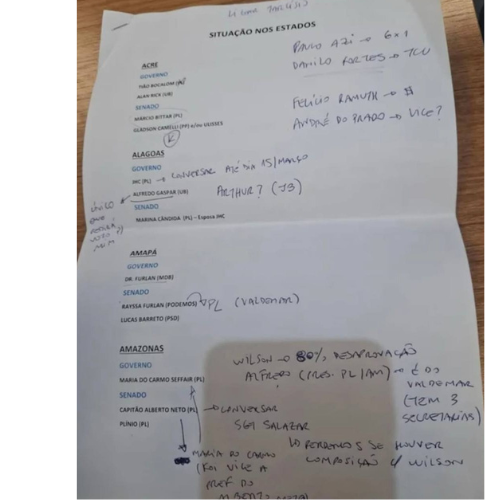 SITUAÇÃO NOS ESTADOS
PAULO AZI → 6x1
DANILO FORTES → TCU
ACRE
GOVERNO
TIÃO BOCALOM
ALAN RICK (UB)
SENADO
FELÍCIO RAMUTH → $
MARCIO BITTAR (PL)
ANDRÉ DO PRADO → VICE?
GLADSON CAMELLI (PP) e/ou ULISSES
ALAGOAS
GOVERNO
JHC (PL) → CONVERSAR ATÉ DIA 15/MARÇO
ALFREDO GASPAR (UB) ARTHUR?
SENADO
MARINA CÂNDIDA (PL) – Esposa JHC
AMAPÁ
GOVERNO
DR. FURLAN (MDB)
SENADO
RAYSSA FURLAN (PODEMOS) → PL (VALDEMAR)
LUCAS BARRETO (PSD)
AMAZONAS
WILSON → 80% DESAPROVAÇÃO
GOVERNO
ALFREDO (PRES. PL/AM) → É DO VALDEMAR
MARIA DO CARMO SEFFAIR (PL)
(TEM 3 SECRETARIAS)
SENADO
CAPITÃO ALBERTO NETO (PL) → CONVERSAR
PLÍNIO (PL)
SGT SALAZAR
SE HOUVER
COMPOSIÇÃO C/ WILSON
MARIA DO CARMO
(FOI VICE